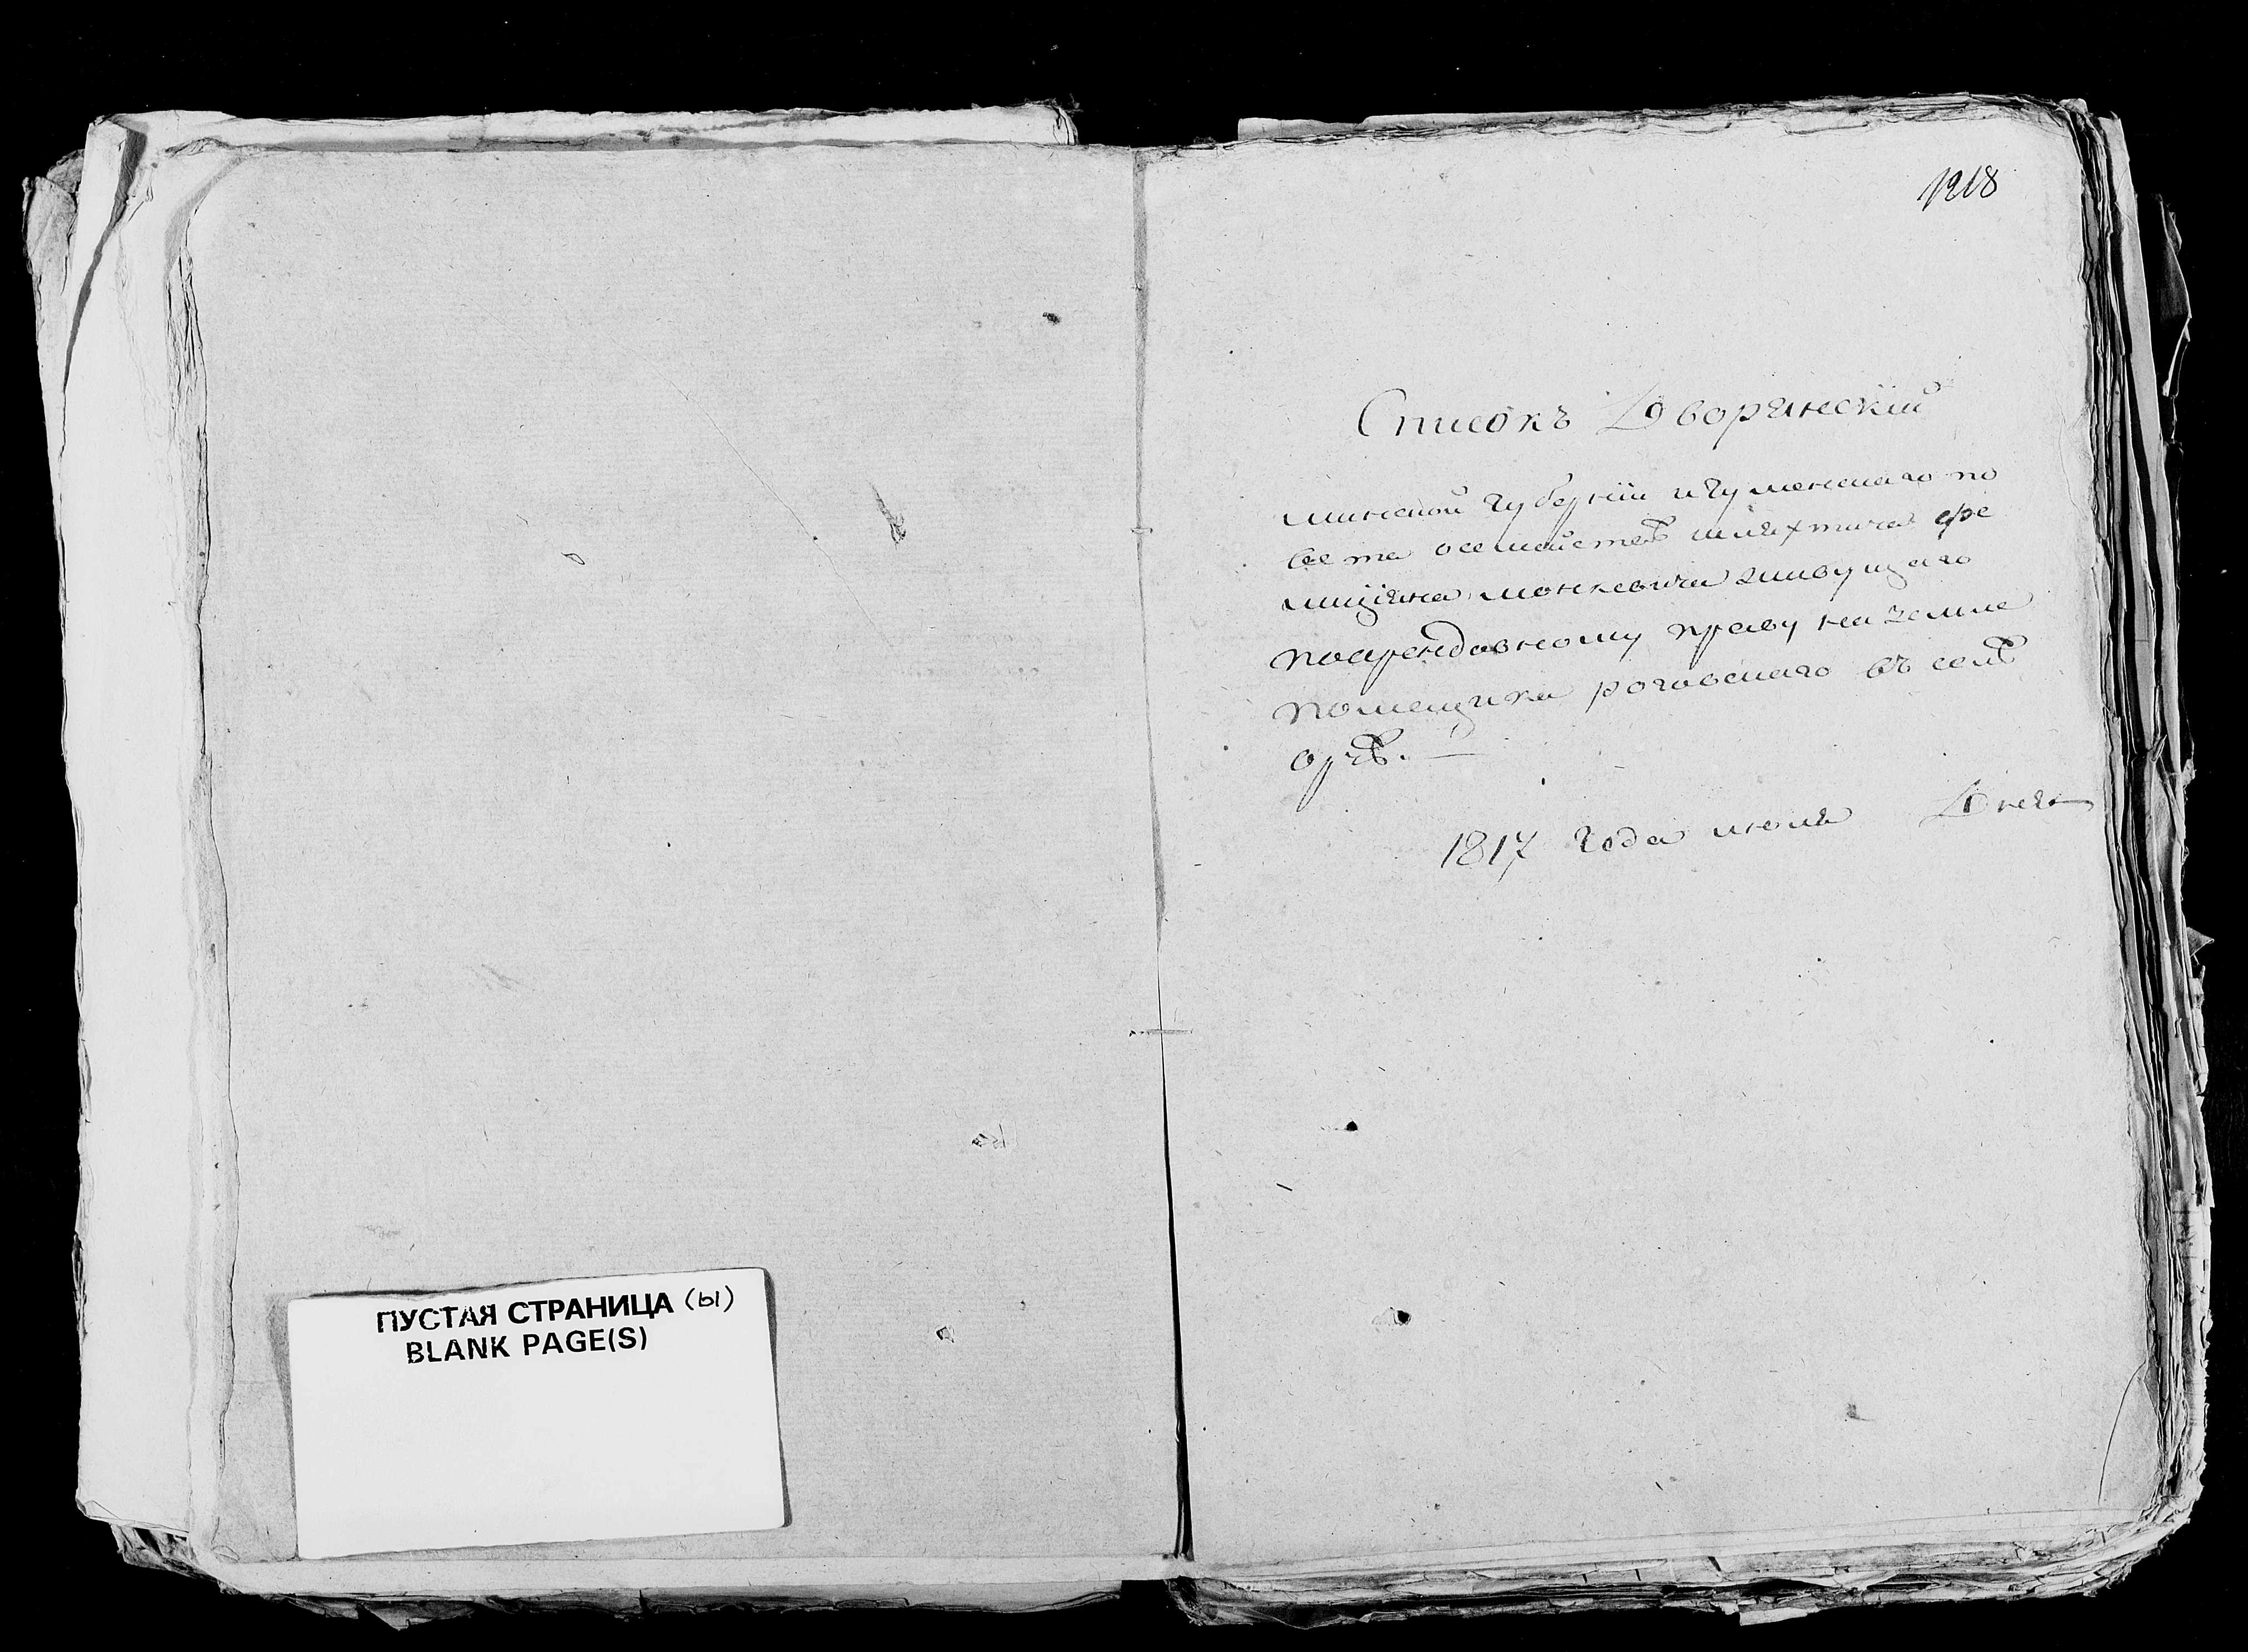 ПУСТАЯ СТРАНИЦА (ы)
BLANK PAGE(S)
1218
Списокъ Дворянскій
минской губерніи игуменскаго по
вета осемействѣ шляхтича Фе
лиціяна монкевича живущаго
поарендовному праву на земле
помещика роговскаго въ селѣ
орѣ.
1817 года июля Дня